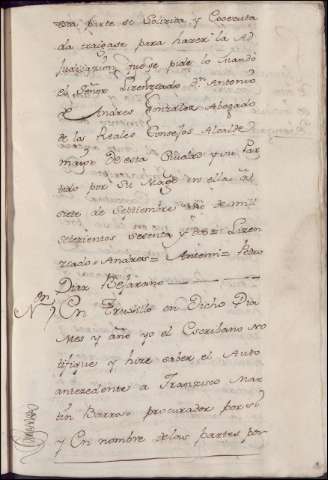 esta parte se solizita y Coecuta
da traigase para hazer la Ad
Judicazion que se pide lo mandó
el Señor Lizenziado Dn. Antonio
Andres Gonzalez Abogado
de los Reales Consejos Alcalde
maior de esta Ciudad y su Par
tido por Su Magd. en ella á
siete de Septiembre año de mill
setezientos sesenta y = Lizen
ziado Andres = Antemi = Pedro
Diaz Bejarano
Non. En Truxillo en Dicho Dia
Mes y año yo el Escribano No
tifique y hize saber el Auto
antezedente a Franzisco Mar
tin Barroso procurador por si
y En nombre de las partes por